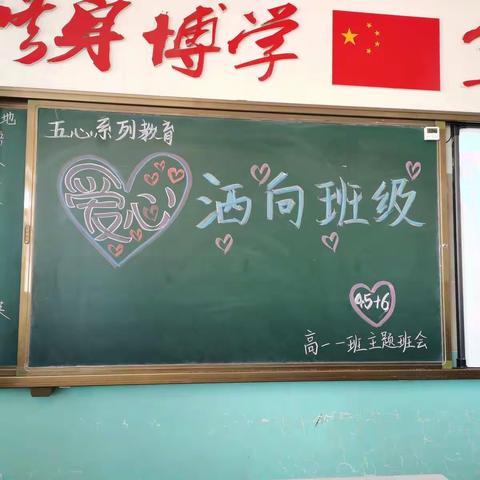 身博学
五心系列教育
爱心 洒向班级
45+6
高一一班主题班会
地